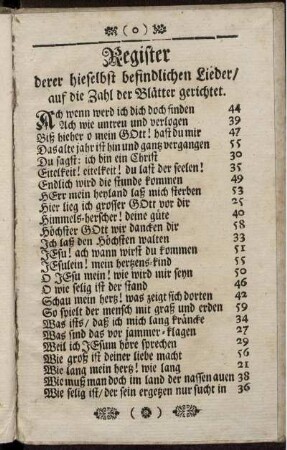 ( o )
Register
derer hieselbst befindlichen Lieder/
auf die Zahl der Blätter gerichtet.
Ach wenn werd ich dich doch finden 44
Ach wie untreu und verlogen 39
Biß hieher o mein GOtt! hast du mir 47
Das alte jahr ist hin und gantz vergangen 55
Du sagst: ich bin ein Christ 30
Eitelkeit! eitelkeit! du last der seelen! 35
Endlich wird die stunde kommen 49
HErr mein heyland laß mich sterben 53
Hier lieg ich grosser GOtt vor dir 25
Himmels-herscher! deine güte 40
Höchster GOtt wir dancken dir 58
Ich laß den Höchsten walten 33
JEsu! ach wann wirst du kommen 51
JEsulein! mein hertzens-kind 55
O JEsu mein! wie wird mir seyn 50
O wie selig ist der stand 46
Schau mein hertz! was zeigt sich dorten 42
So spielt der mensch mit graß und erden 59
Was ists/ daß ich mich lang kräncke 34
Was sind das vor jammer-klagen 27
Weil ich JEsum höre sprechen 29
Wie groß ist deiner liebe macht 56
Wie lang mein hertz! wie lang 21
Wie muß man doch im land der nassen auen 38
Wie selig ist/ der sein ergetzen nur sucht in 36